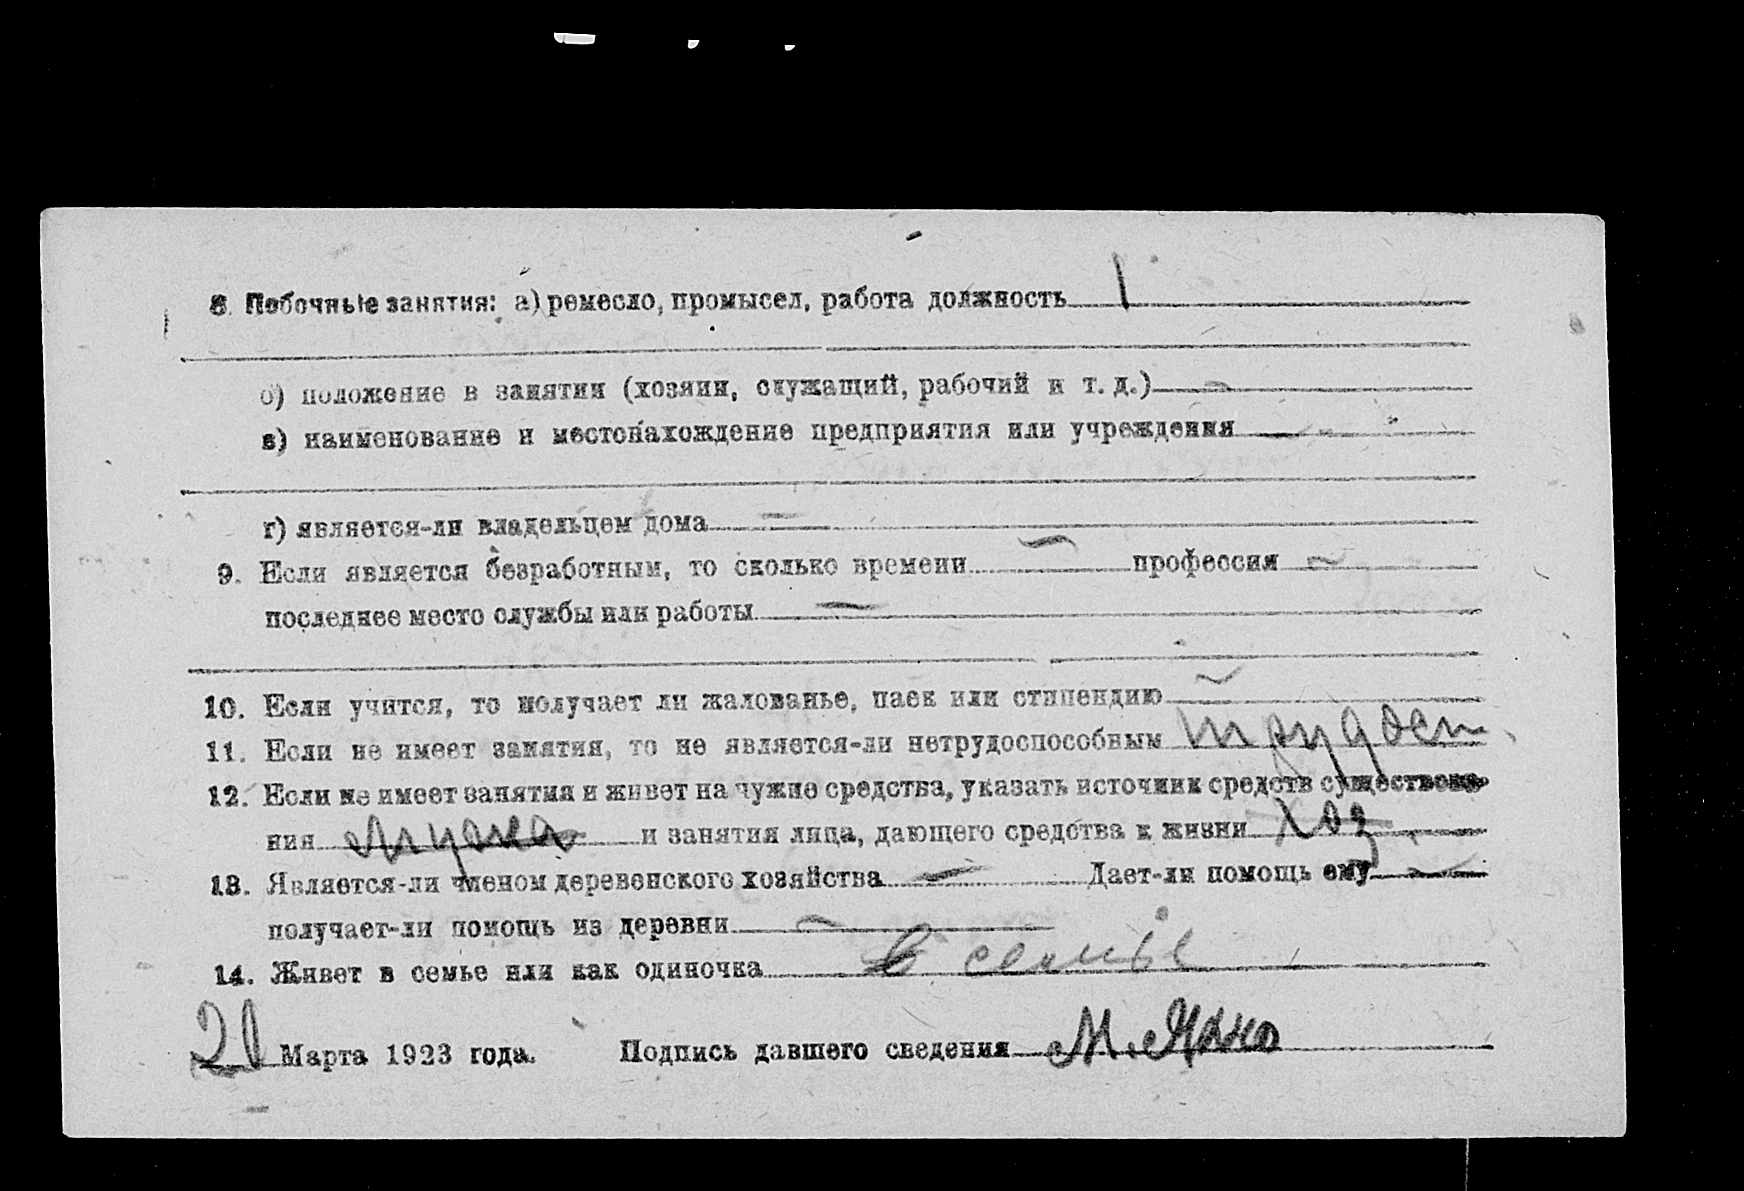 8. Побочные занятия: а) ремесло, промысел, работа должность
б) положение в занятии (хозяин, служащий, рабочий и т. д.) —
в) наименование и местонахождение предприятия или учреждения —
г) является-ли владельцем дома —
9. Если является безработным, то сколько времени — профессия —
последнее место службы или работы —
10. Если учится, то получает ли жалованье, паек или стипендию —
11. Если не имеет занятия, то не является-ли нетрудоспособным трудосп.
12. Если не имеет занятия и живет на чужие средства, указать источник средств существова-
ния мужа и занятия лица, дающего средства к жизни хоз.
13. Является-ли членом деревенского хозяйства — Дает-ли помощь ему —
получает-ли помощь из деревни —
14. Живет в семье или как одиночка В семье
20 Марта 1923 года. Подпись давшего сведения М.